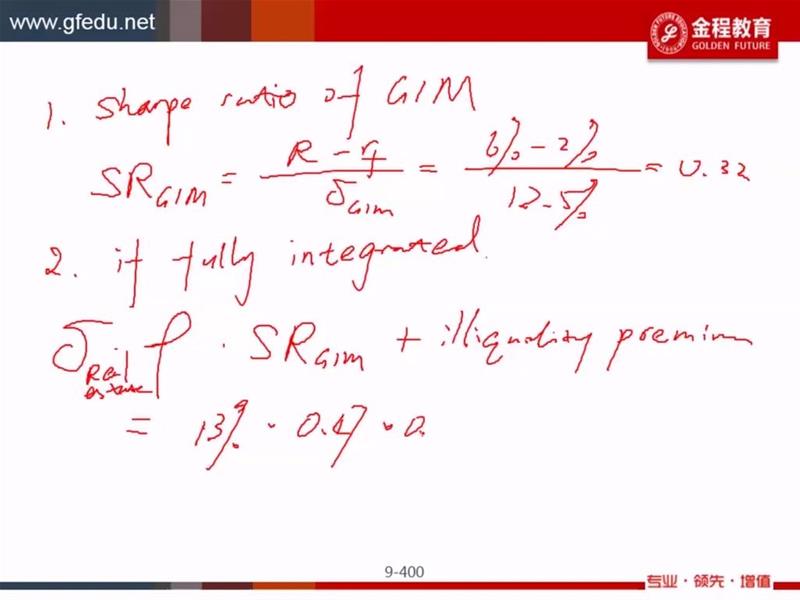 www.gfedu.net
金程教育
GOLDEN FUTURE
1. Sharpe ratio of GIM
SR_GIM = (R - rf) / σ_GIM = (6% - 2%) / 12.5% = 0.32
2. if fully integrated.
σ_Real estate ρ · SR_GIM + illiquidity premium
= 13% · 0.47 · 0.
9-400
专业·领先·增值